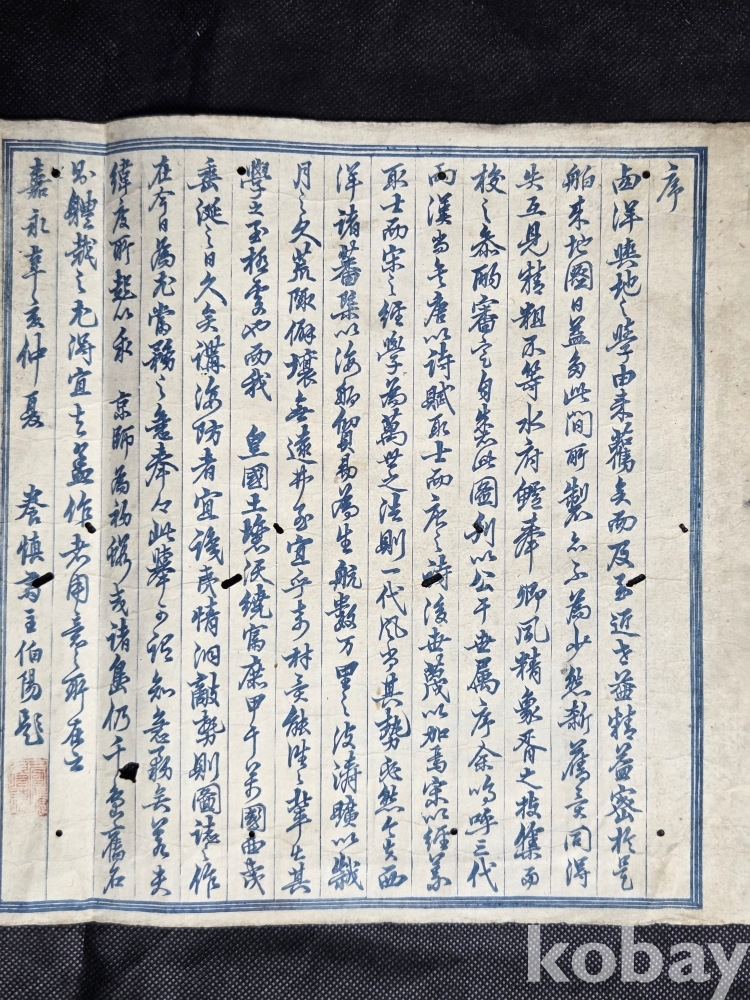 序
西洋輿地之學由來舊矣而及至近世益精益密於是
舶來地圖日益多此間所製亦不為少然新舊異同得
失互見精粗不等水府鱸奉卿夙精象胥之技集而
校之參酌審定自製此圖刊以公于世屬序余嗚呼三代
兩漢尚矣唐以詩賦取士而唐之詩後世蔑以加焉宋以經義
取士而宋之經學為萬世之法則一代風尚其勢也然今夫西
洋諸蕃舉以海舶貿易為生航數万里之波濤曠以歲
月之久荒陬僻壤無遠弗至宜乎奇材異能涉之輩出其
學之至極處也而我 皇國土壤沃饒富庶甲于萬國西戎
垂涎之日久矣講海防者宜識虜情洞敵勢則圖誌之作
在今日為尤當務之急奉卿此舉可謂知急務矣若夫
緯度所起以我 京師為初球或諸島仍于舊名
則體裁之尤得宜者蓋作者用意之所在云
嘉永辛亥仲夏 養慎齋主伯陽題
kobay